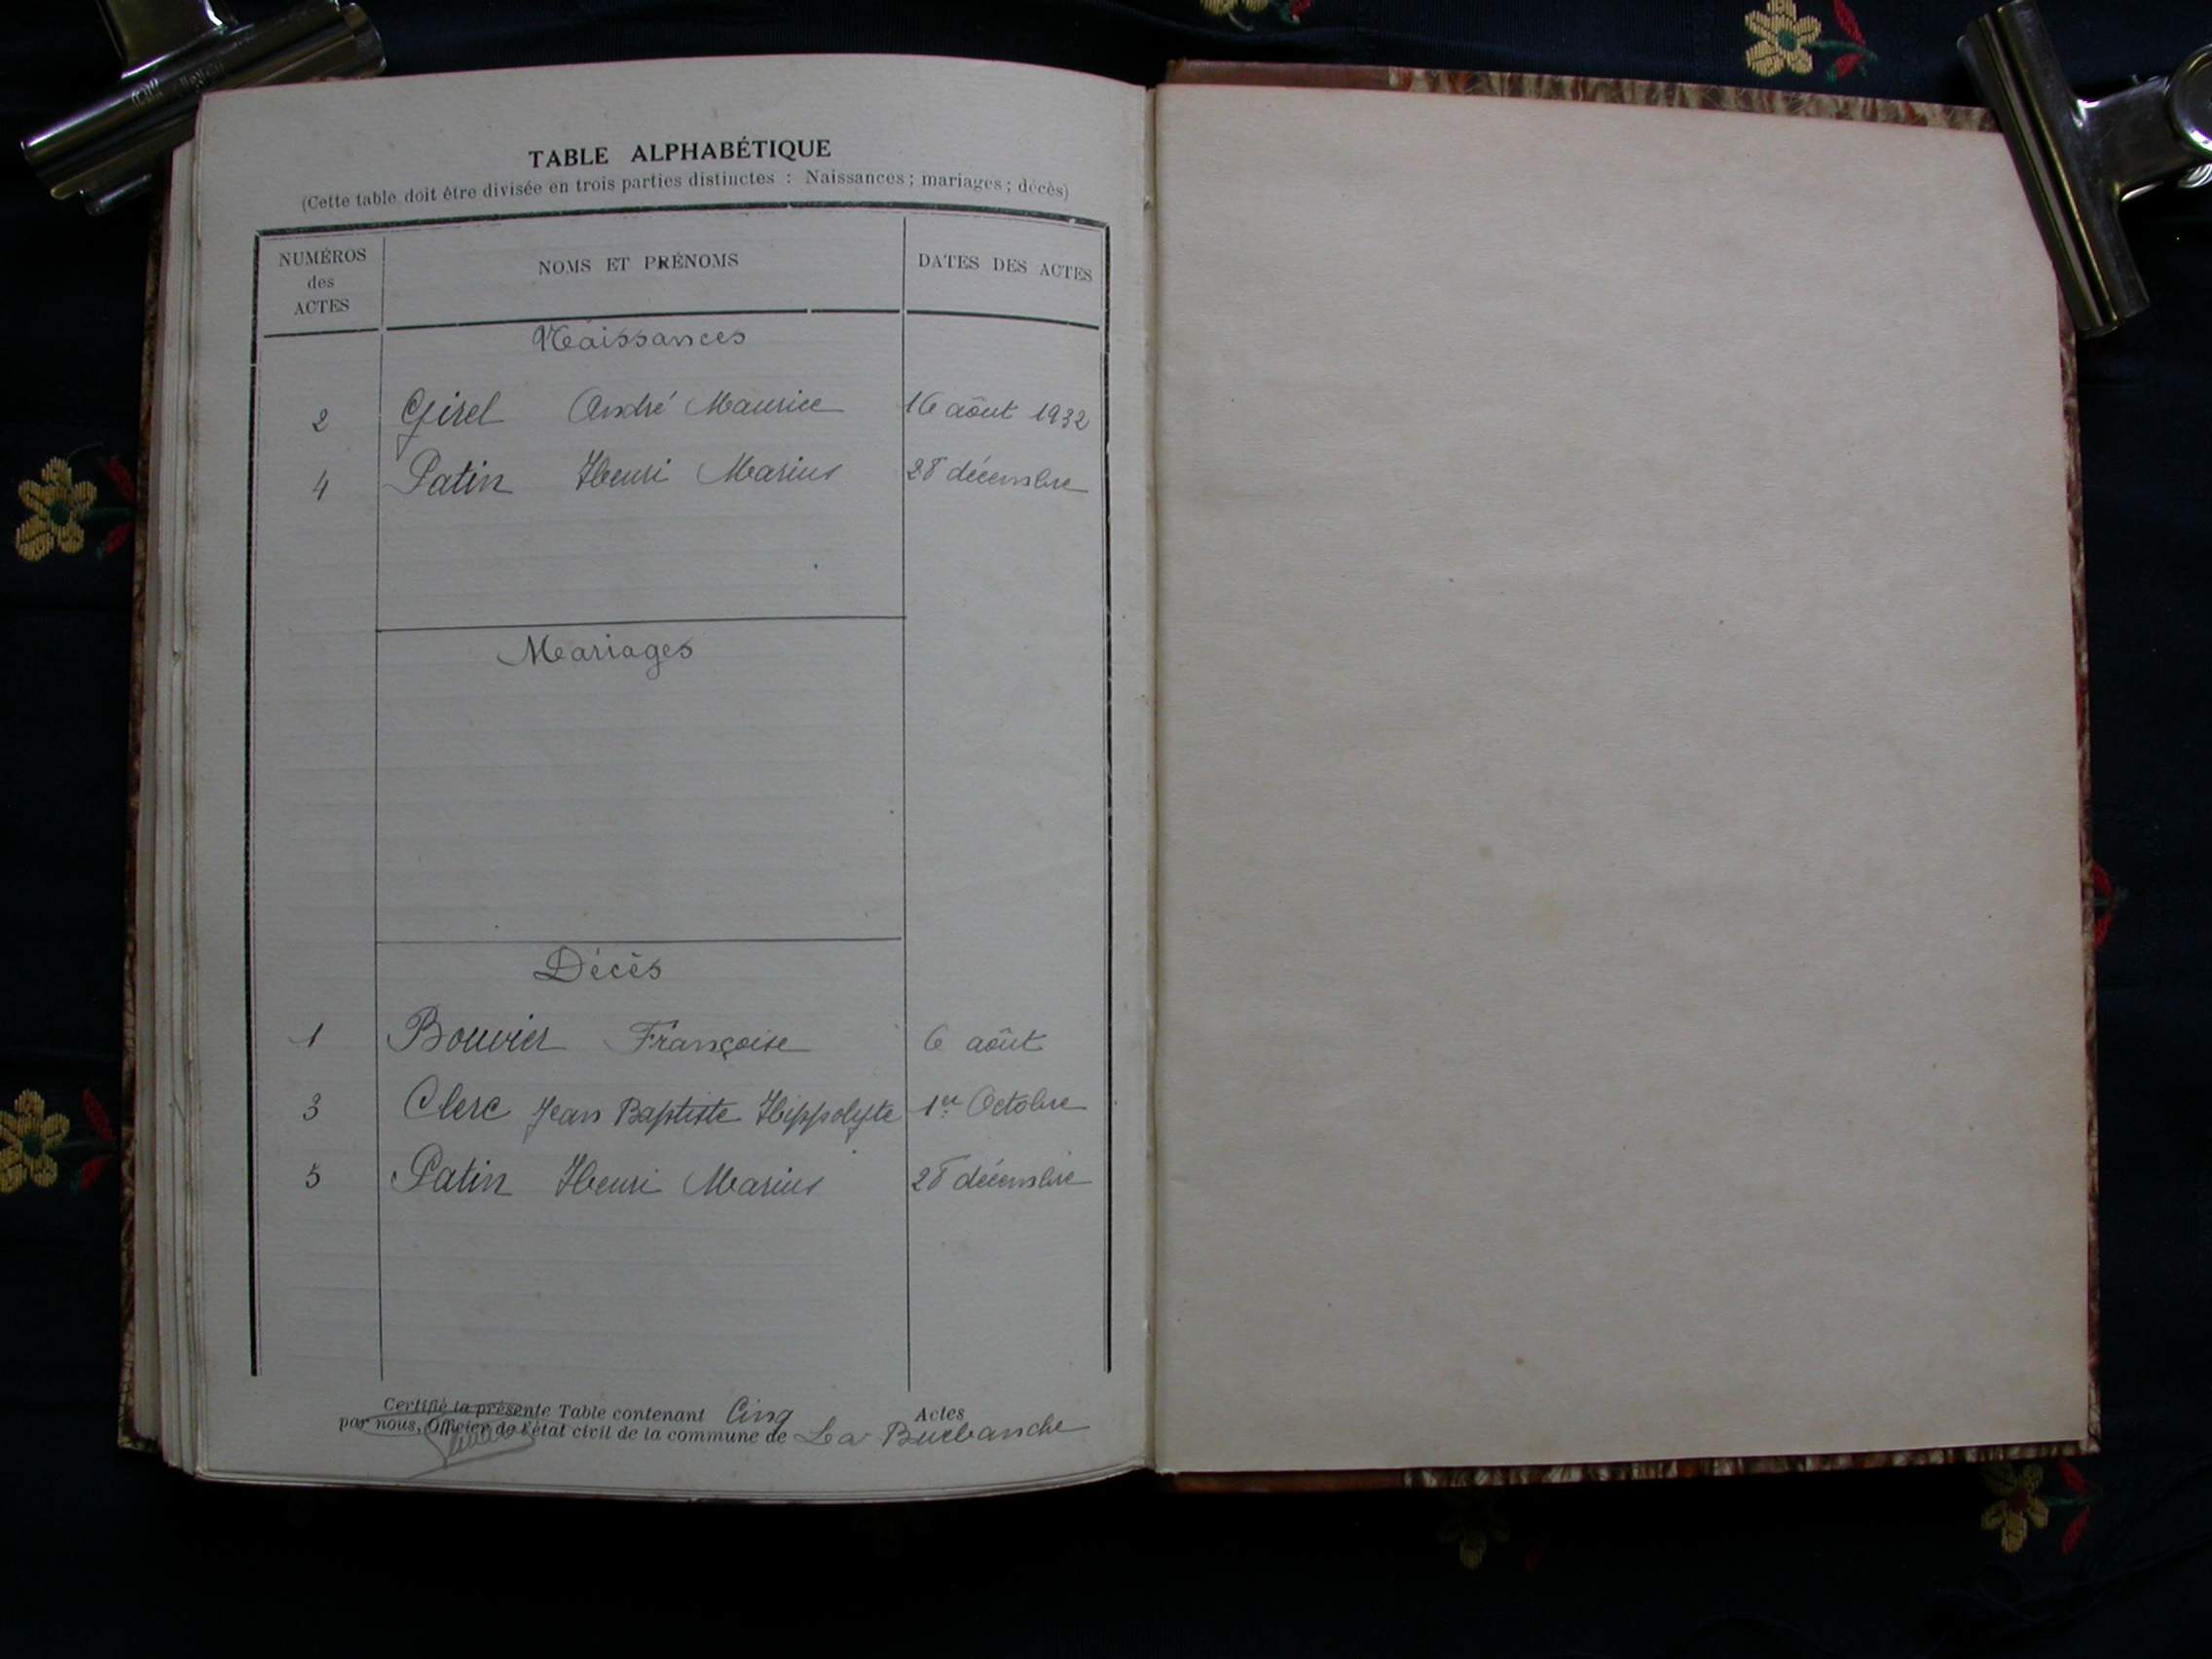 TABLE ALPHABÉTIQUE
(Cette table doit être divisée en trois parties distinctes : Naissances ; mariages ; décès)
NUMÉROS des ACTES NOMS ET PRÉNOMS DATES DES ACTES
Naissances
2 Girel André Maurice 16 aôut 1932
4 Patin Henri Marius 28 décembre
Mariages
Décès
1 Bouvier Françoise 6 aôut
3 Clerc Jean Baptiste Hippolyte 1er Octobre
5 Patin Henri Marius 28 décembre
Certifié la présente Table contenant Cinq Actes
par nous, Officier de l'état civil de la commune de La Burbanche